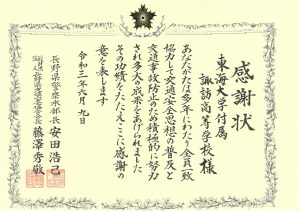 感謝状
東海大学付属
諏訪高等学校様
あなたがたは多年にわたり会員一致
協力して交通安全思想の普及と
交通事故防止のため積極的に努力
され多大の成果をあげられました
その功績をたたえここに感謝の
意を表します
令和三年六月九日
長野県警察本部長 安田浩己
藤澤秀敏